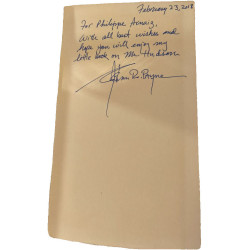 February 23, 2018
For Philippe
With all best wishes and
hope you will enjoy my
little book on Mr. Hudson